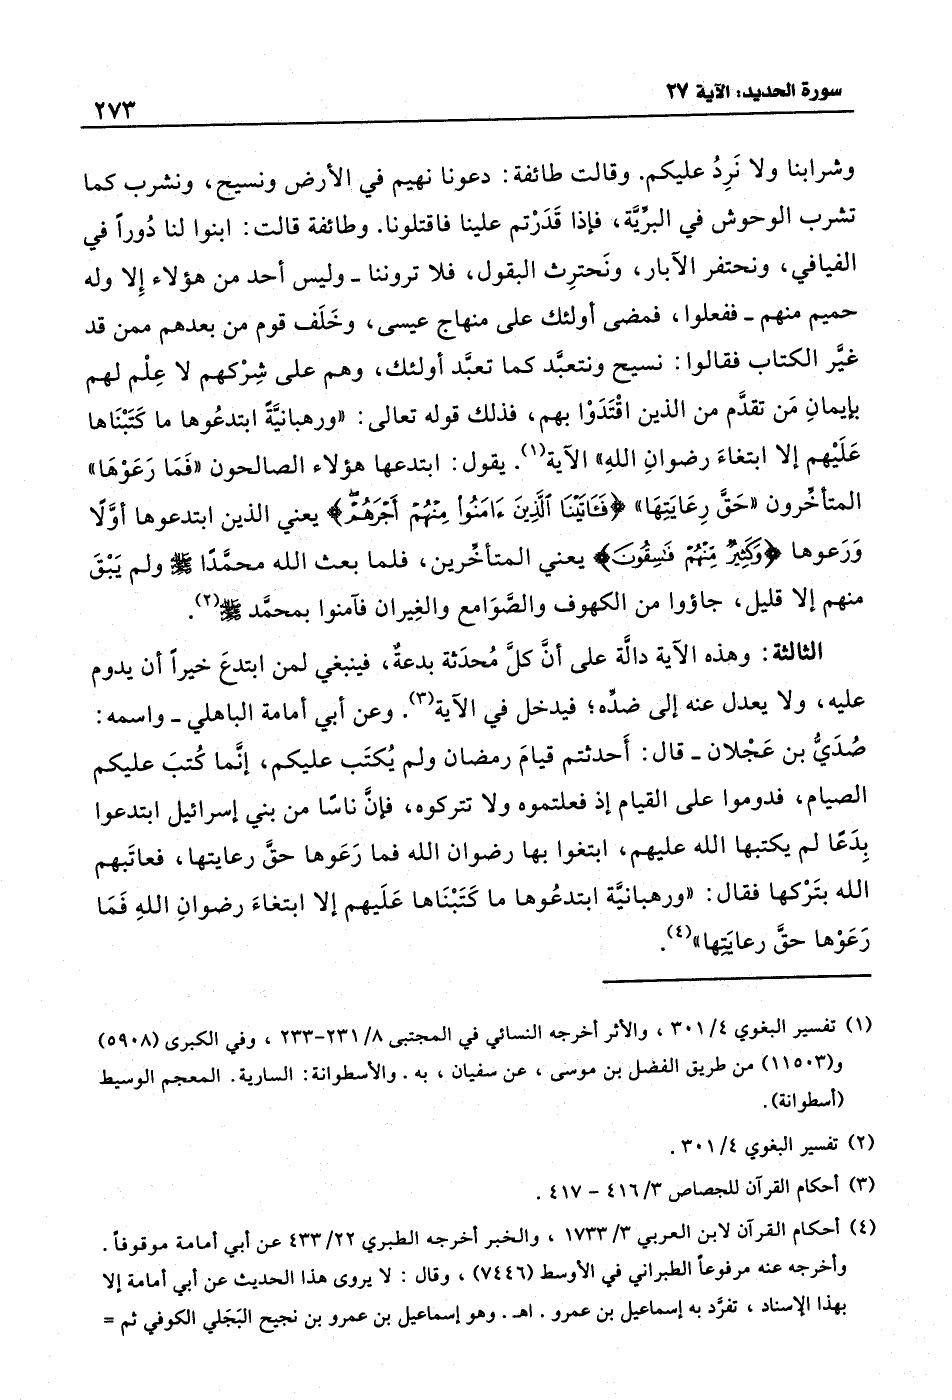 سورة الحديد: الآية ٢٧
٢٧٣
وشرابنا ولا نَرِدُ عليكم. وقالت طائفة: دعونا نهيم في الأرض ونسيح، ونشرب كما
تشرب الوحوش في البرِّيَّة، فإذا قَدَرْتم علينا فاقتلونا. وطائفة قالت: ابنوا لنا دُوراً في
الفيافي، ونحتفر الآبار، ونَحترِث البقول، فلا تروننا ـ وليس أحد من هؤلاء إِلا وله
حميم منهم ـ ففعلوا، فمضى أولئك على منهاج عيسى، وخَلَف قوم من بعدهم ممن قد
غيَّر الكتاب فقالوا: نسيح ونتعبَّد كما تعبَّد أولئك، وهم على شِرْكهم لا عِلْم لهم
بإيمانِ مَن تقدَّم من الذين اقْتَدَوْا بهم، فذلك قوله تعالى: «ورهبانيَّةً ابتدعُوها ما كَتَبْنَاها
عَلَيْهم إلا ابتغاءَ رضوانِ اللهِ» الآية(١). يقول: ابتدعها هؤلاء الصالحون «فَمَا رَعَوْهَا»
المتأخِّرون «حَقَّ رِعَايَتِهَا» ﴿فَـَٔاتَيْنَا ٱلَّذِينَ ءَامَنُوا۟ مِنْهُمْ أَجْرَهُمْۖ﴾ يعني الذين ابتدعوها أوَّلًا
وَرَعوها ﴿وَكَثِيرٌ مِّنْهُمْ فَـٰسِقُونَ﴾ يعني المتأخِّرين، فلما بعث الله محمَّدًا ﷺ ولم يَبْقَ
منهم إلا قليل، جاؤوا من الكهوف والصَّوَامع والغِيران فآمنوا بمحمَّد ﷺ(٢).
الثالثة: وهذه الآية دالَّة على أنَّ كلَّ مُحدَثة بدعةٌ، فينبغي لمن ابتدعَ خيراً أن يدوم
عليه، ولا يعدل عنه إلى ضدِّه؛ فيدخل في الآية(٣). وعن أبي أمامة الباهلي ـ واسمه:
صُدَيُّ بن عَجْلان ـ قال: أَحدثتم قيامَ رمضان ولم يُكتَب عليكم، إنَّما كُتبَ عليكم
الصيام، فدوموا على القيام إذ فعلتموه ولا تتركوه، فإنَّ ناسًا من بني إسرائيل ابتدعوا
بِدَعًا لم يكتبها الله عليهم، ابتغوا بها رضوان الله فما رَعَوها حقَّ رعايتها، فعاتَبهم
الله بتَرْكها فقال: «ورهبانيَّة ابتدعُوها ما كَتَبْنَاها عَلَيهم إلا ابتغاءَ رضوانِ اللهِ فَمَا
رَعَوْها حقَّ رعايَتِها»(٤).
(١) تفسير البغوي ٣٠١/٤ ، والأثر أخرجه النسائي في المجتبى ٢٣١/٨-٢٣٣ ، وفي الكبرى (٥٩٠٨)
و(١١٥٠٣) من طريق الفضل بن موسى ، عن سفيان ، به . والأسطوانة: السارية. المعجم الوسيط
(أسطوانة).
(٢) تفسير البغوي ٣٠١/٤ .
(٣) أحكام القرآن للجصاص ٤١٦/٣ – ٤١٧ .
(٤) أحكام القرآن لابن العربي ١٧٣٣/٣ ، والخبر أخرجه الطبري ٤٣٣/٢٢ عن أبي أمامة موقوفاً .
وأخرجه عنه مرفوعاً الطبراني في الأوسط (٧٤٤٦) ، وقال : لا يروى هذا الحديث عن أبي أمامة إلا
بهذا الإسناد ، تفرَّد به إسماعيل بن عمرو . اهـ . وهو إسماعيل بن عمرو بن نجيح البَجَلي الكوفي ثم =